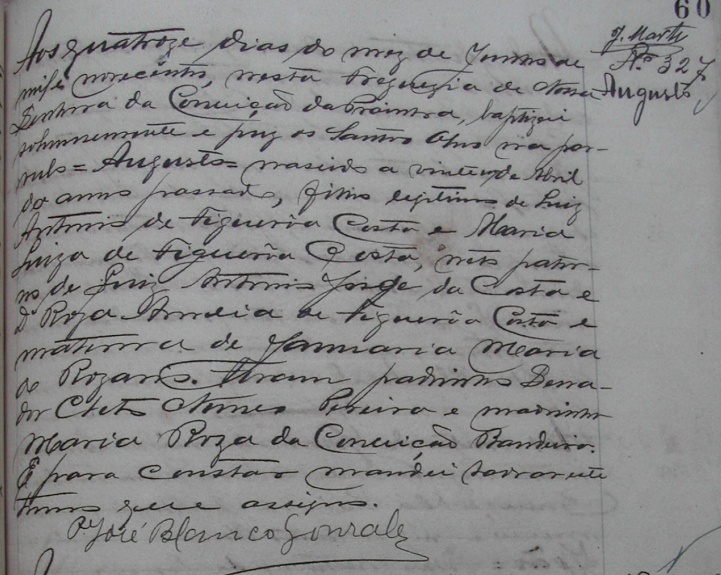 60
J. Marts
Nº 327
Augusto
Aos quatroze dias do mez de Junho de
mil e novecentos, nesta freguezia de Nossa
Senhora da Conceição da baptizei
solemnemente e puz os Santos Oleos no par-
vulo = Augusto = nascido a vinte de Abril
do anno passado, filho legitimo de Luiz
Antonio de Figueirôa Costa e Maria
Luiza de Figueirôa Costa, neto pater-
no de Luiz Antonio Jorge da Costa e
D. Roza Amelia de Figueirôa Costa e
materna de Januaria Maria
do Rozario. Foram padrinhos Sena-
dor Nunes Pereira e madrinha
Maria Roza da Conceição Bandeira.
E para constar mandei lavrar este
termo que assigno.
Pe José Blanco Gonzalez